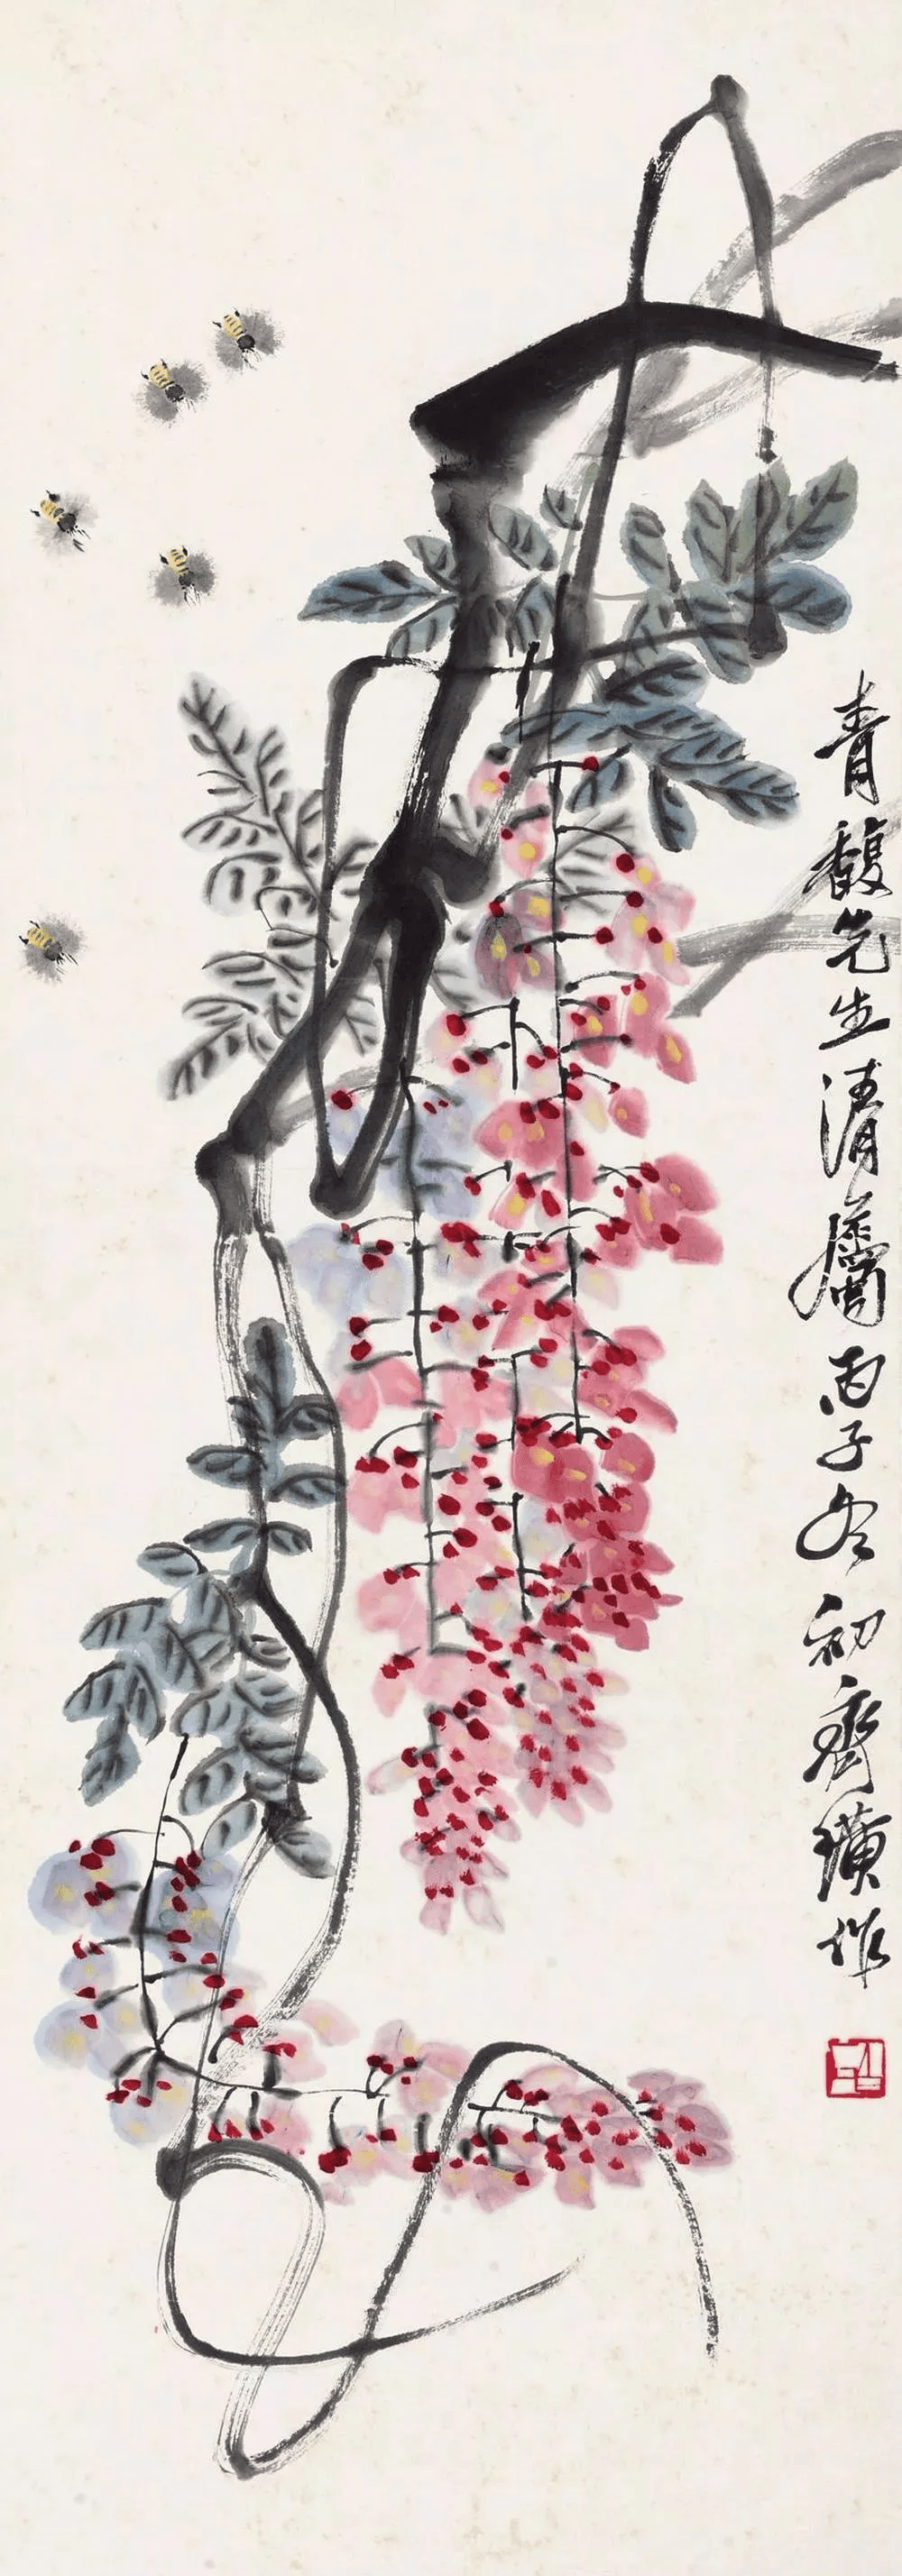 青馥先生清屬丙子冬初齊璜作